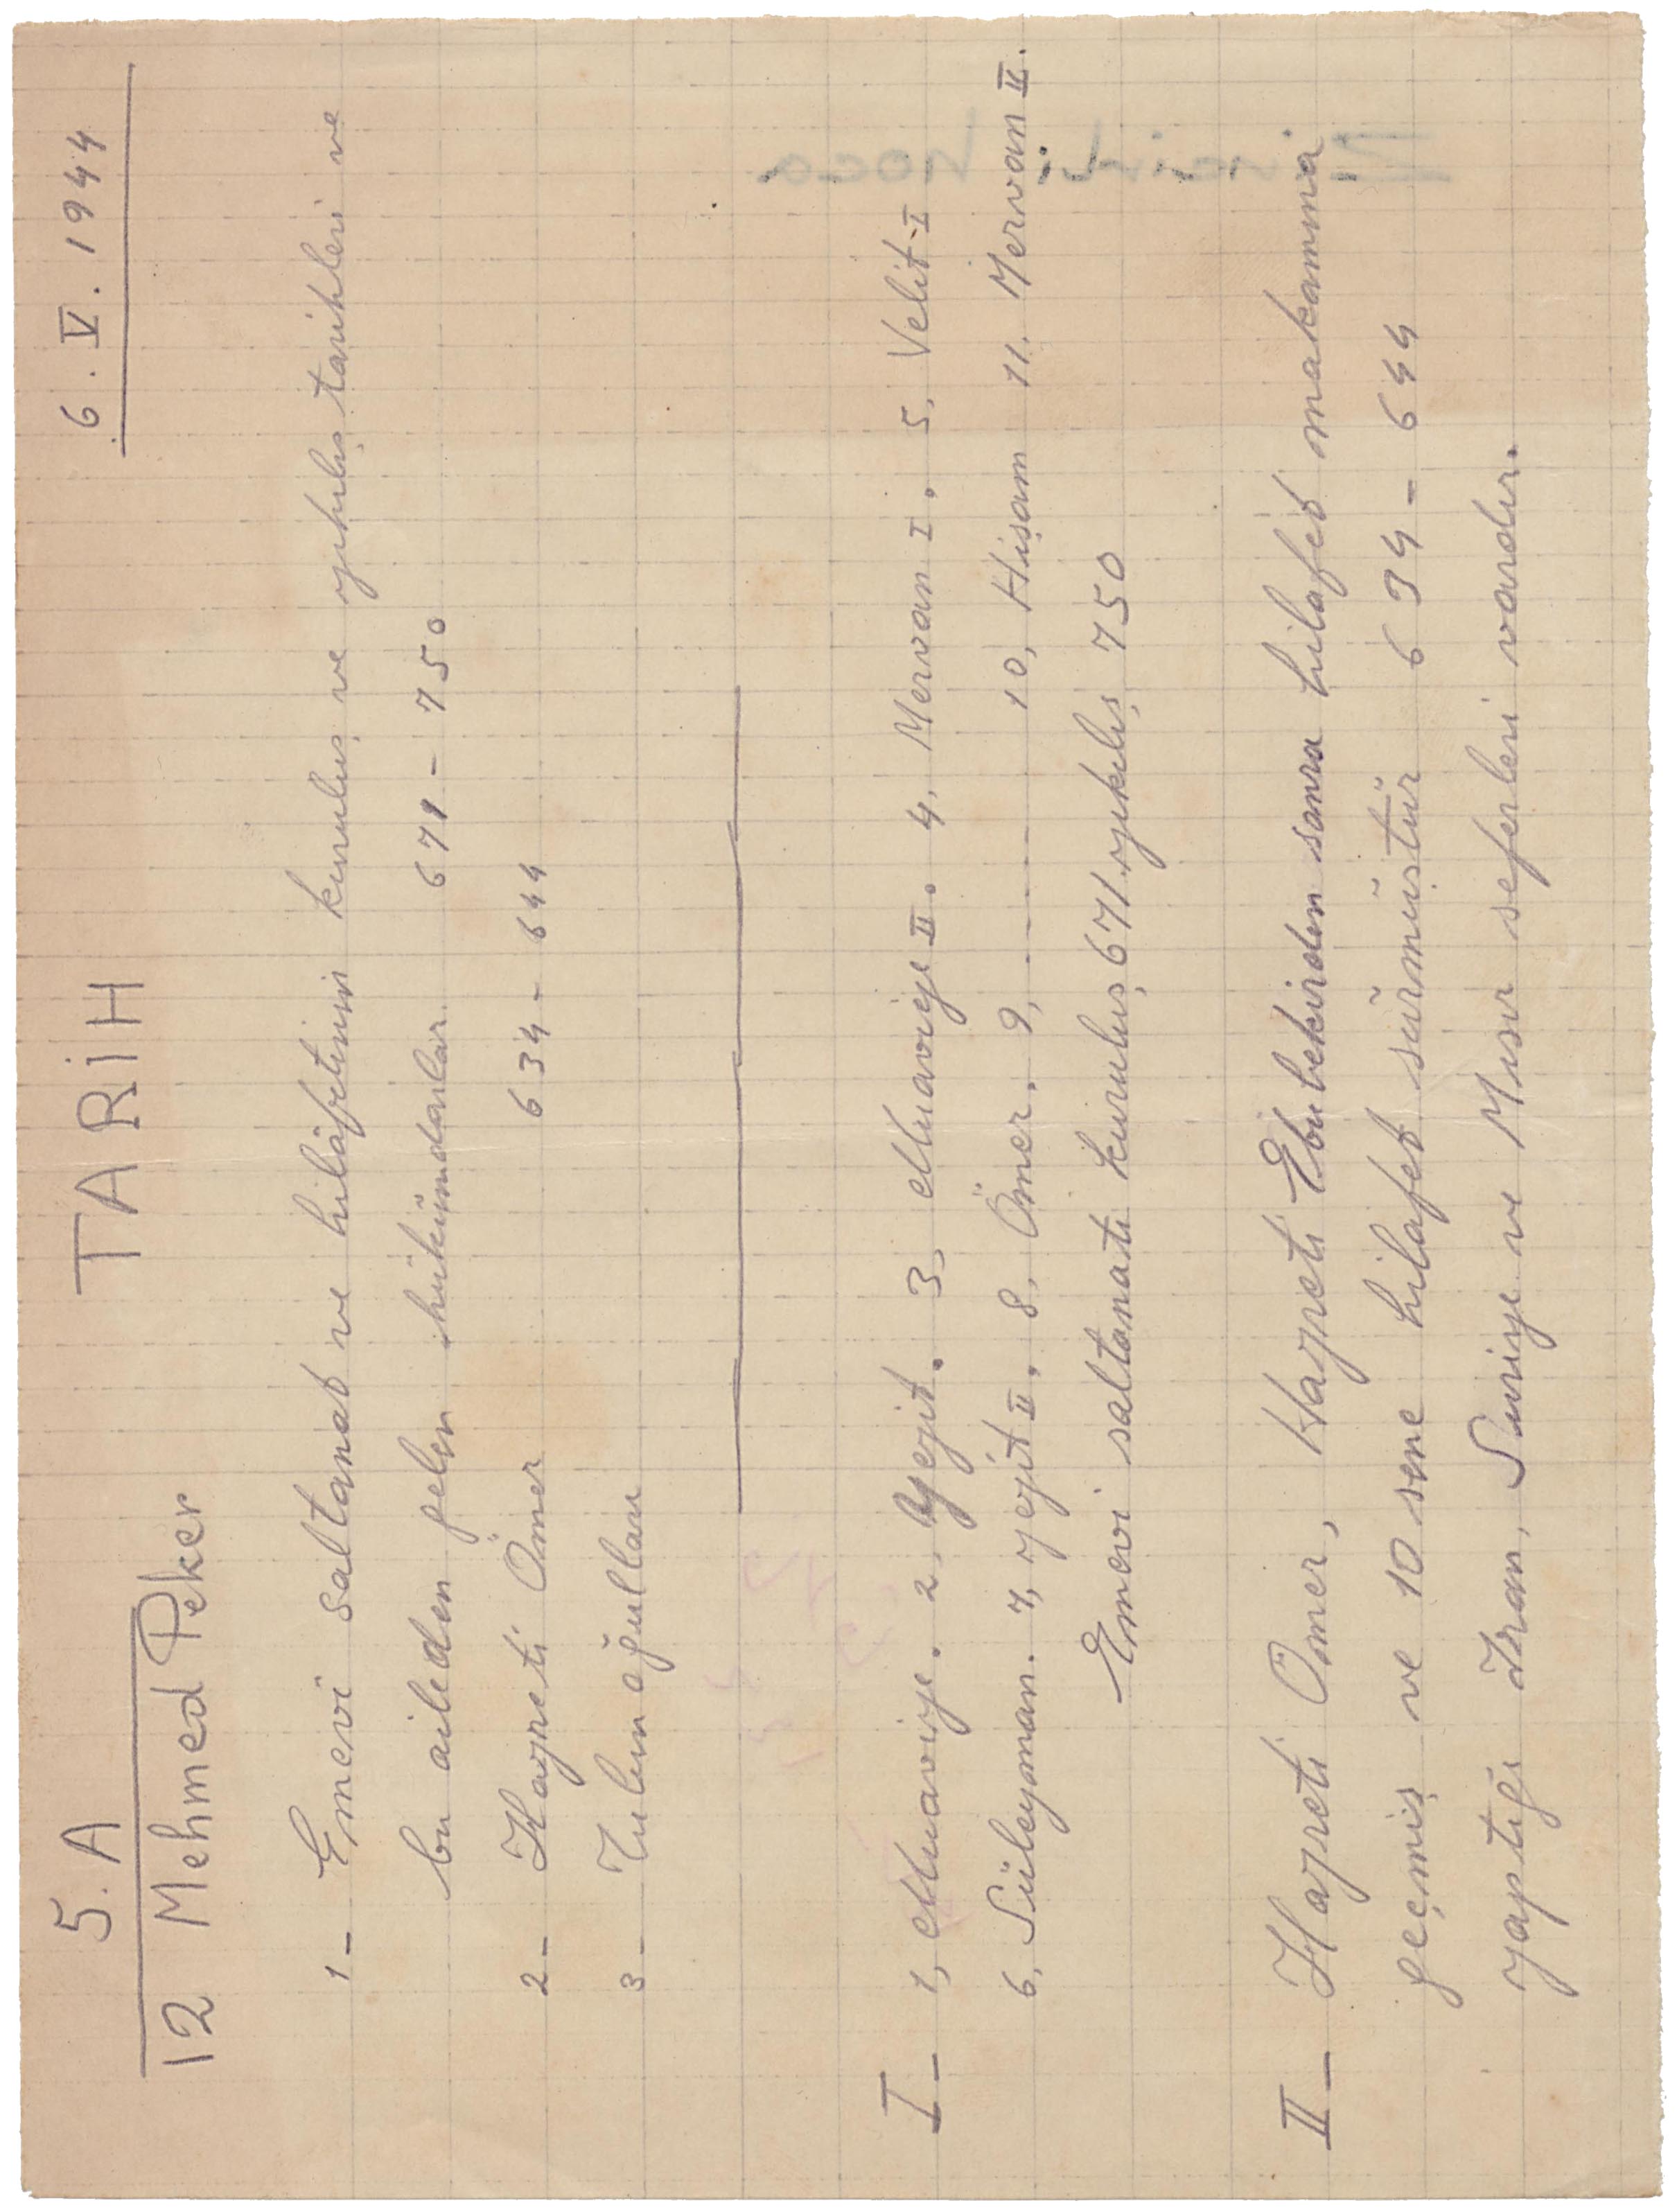 5. A
TARİH
6. V. 1944
12 Mehmed Peker
1- Emevi saltanat ve hilâfetinin kuruluş ve yıkılış tarihleri ve
bu aileden gelen hükümdarlar. 671 - 750
2- Hazreti Ömer 634 - 644
3- Tulun oğulları
I- 1, Muaviye. 2, Yezit. 3, Muaviye II. 4, Mervan I. 5, Velit I
6, Süleyman. 7, Yezit II. 8, Ömer. 9, - - - - 10, Hişam 11. Mervan II.
Emevi saltanatı kuruluş 671 yıkılış 750
II- Hazreti Ömer, Hazreti Ebubekirden sonra hilafet makamına
geçmiş ve 10 sene hilafet sürmüştür 634 - 644
yaptığı İran, Suriye ve Mısır seferleri vardır.